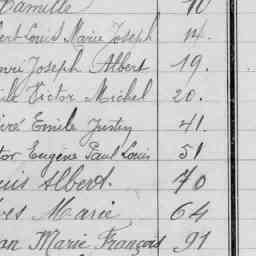 Camille 10
ert Louis Marie Joseph 14.
enri Joseph Albert 19.
ile Victor Michel 20.
iré Emile Justin 41.
tor Eugène Paul Louis 51
ouis Albert. 70
ves Marie 64
an Marie François 91